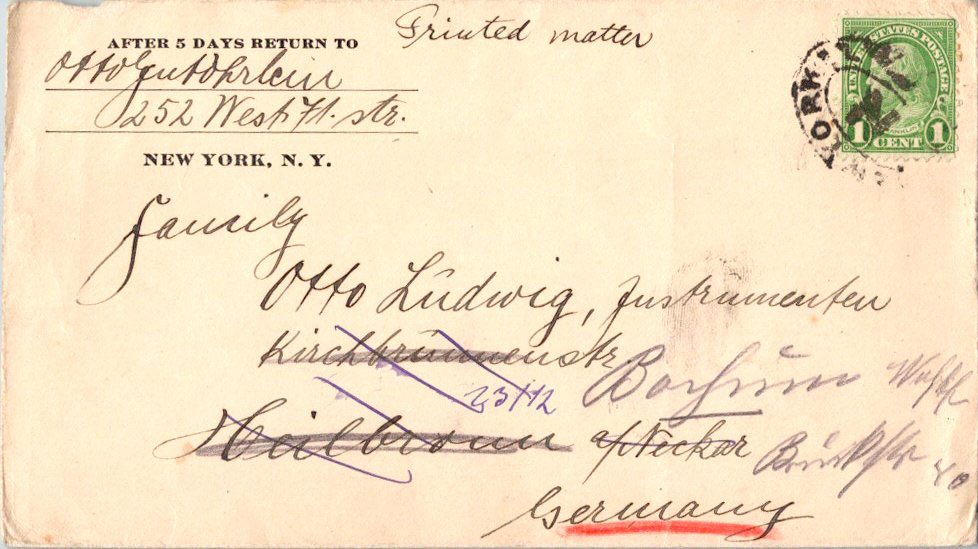 Printed matter
AFTER 5 DAYS RETURN TO
Otto Gutöhrlein
252 West 71. str.
NEW YORK, N. Y.
UNITED STATES POSTAGE
1 CENT 1
YORK
Family
Otto Ludwig, Instrumenten
Kirchbrunnenstr
23/12
Bochum
Heilbronn a/Neckar
Brückstr 40
Germany